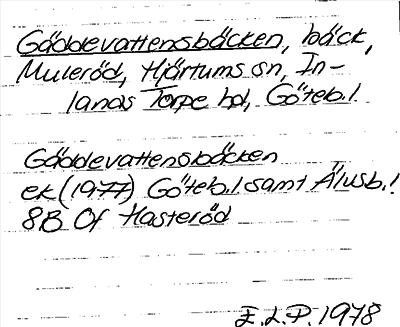 Gäddevattensbäcken, bäck,
Muleröd, Hjärtums sn, In-
lands Torpe hd, Göteb.l.
Gäddevattensbäcken
ek (1977) Göteb.l samt Älvsb.l
8B 0f Hasteröd
E.L.P. 1978